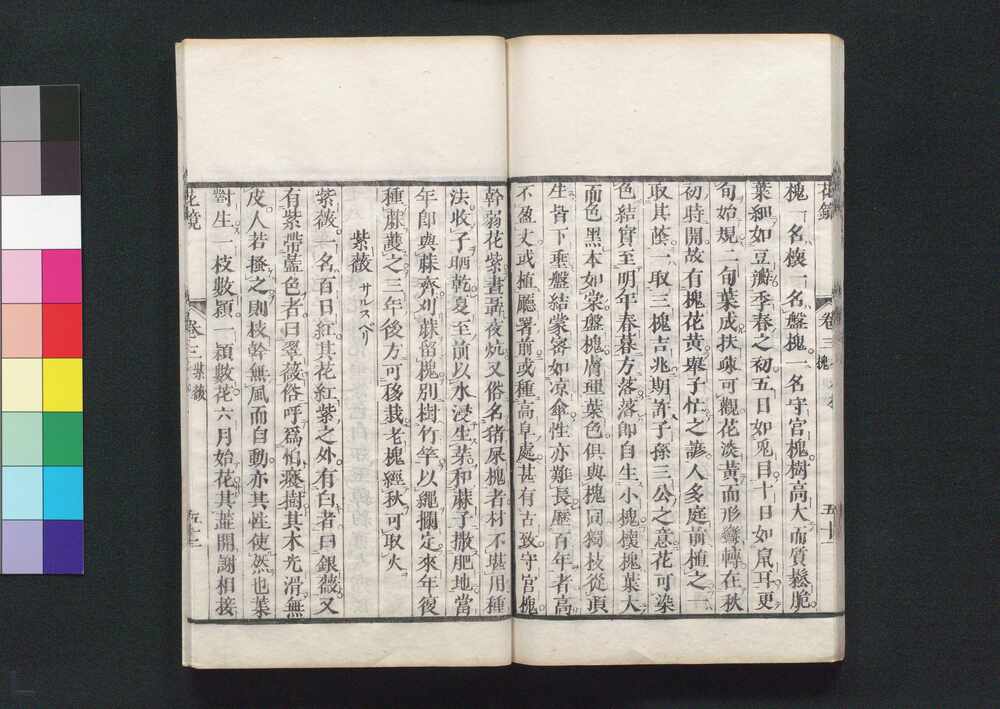 花鏡 卷三 槐 五十一
槐一名櫰一名盤槐一名守宮槐樹高大而質鬆脆
葉細如豆瓣季春之初五日如兎目十日如鼠耳更
旬始規二旬葉成扶疎可觀花淡黃而形彎轉在秋
初時開故有槐花黃擧子忙之諺人多庭前植之一
取其蔭一取三槐吉兆期許子孫三公之意花可染
色結實至明年春暮方落落即自生小槐櫰槐葉大
而色黑本如棠盤槐膚理葉色俱與槐同獨枝從頂
生皆下垂盤結蒙密如凉傘性亦難長歷百年者高
不盈丈或植廳署前或種高阜處甚有古致守宮槐
幹弱花紫晝聶夜炕又俗名猪屎槐者材不堪用種
法收子晒乾夏至前以水浸生芽和蔴子撒肥地當
年即與蔴齊刈蔴留槐別樹竹竿以繩攔定來年復
種蔴護之三年後方可移栽老槐經秋可取火
紫薇 サルスベリ
紫薇一名百日紅其花紅紫之外有白者曰銀薇又
有紫帶藍色者曰翠薇俗呼爲怕癢樹其木光滑無
皮人若搔之則枝幹無風而自動亦其性使然也葉
對生一枝數頴一頴數花六月始花其蘂開謝相接
花鏡 卷三 紫薇 五十二